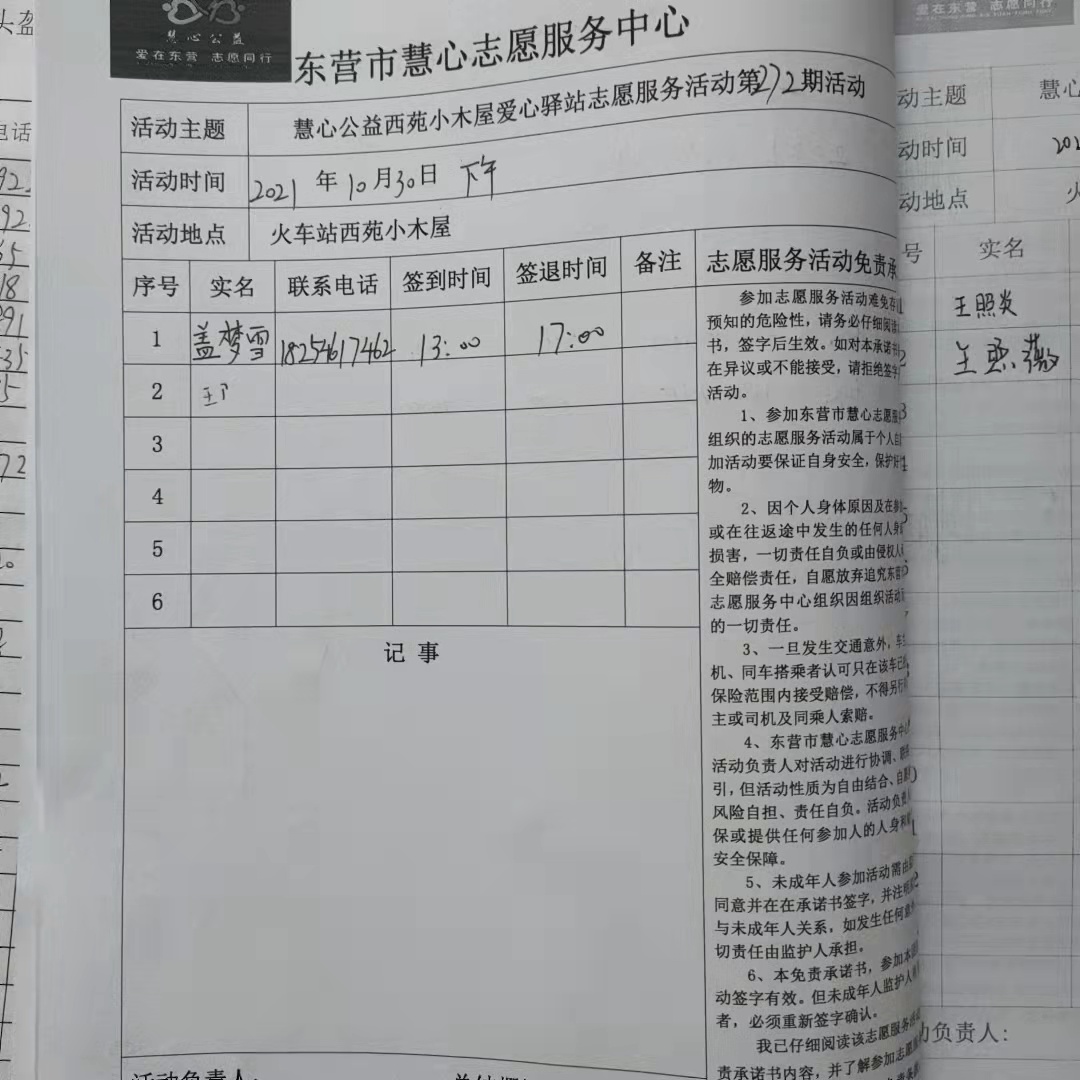 慧心公益
爱在东营 志愿同行
东营市慧心志愿服务中心
活动主题 慧心公益西苑小木屋爱心驿站志愿服务活动第272期活动
活动时间 2021 年 10 月 30 日 下午
活动地点 火车站西苑小木屋
序号 实名 联系电话 签到时间 签退时间 备注
1 盖梦雪 18254617462 13:00 17:00
2
3
4
5
6
记事
志愿服务活动免责承
参加志愿服务活动难免存
预知的危险性，请务必仔细阅读
书，签字后生效。如对本承诺书
在异议或不能接受，请拒绝签字
活动。
1、参加东营市慧心志愿服
组织的志愿服务活动属于个人自
加活动要保证自身安全，保护好
物。
2、因个人身体原因及在参
或在往返途中发生的任何人身
损害，一切责任自负或由侵权人
全赔偿责任，自愿放弃追究东营
志愿服务中心组织因组织活动
的一切责任。
3、一旦发生交通意外，车
机、同车搭乘者认可只在该车已
保险范围内接受赔偿，不得另行
主或司机及同乘人索赔。
4、东营市慧心志愿服务中心
活动负责人对活动进行协调、
引，但活动性质为自由结合、自愿
风险自担、责任自负。活动负责
保或提供任何参加人的人身和
安全保障。
5、未成年人参加活动需由
同意并在在承诺书签字，并注明
与未成年人关系，如发生任何意外
切责任由监护人承担。
6、本免责承诺书，参加本
动签字有效。但未成年人监护人
者，必须重新签字确认。
我已仔细阅读该志愿服务活动
责承诺书内容，并了解参加志愿
活动负责人：
爱在东营 志愿同行
动主题 慧心
动时间 202
动地点 火
号 实名
王照炎
王照薇
动负责人：
头盔
电话